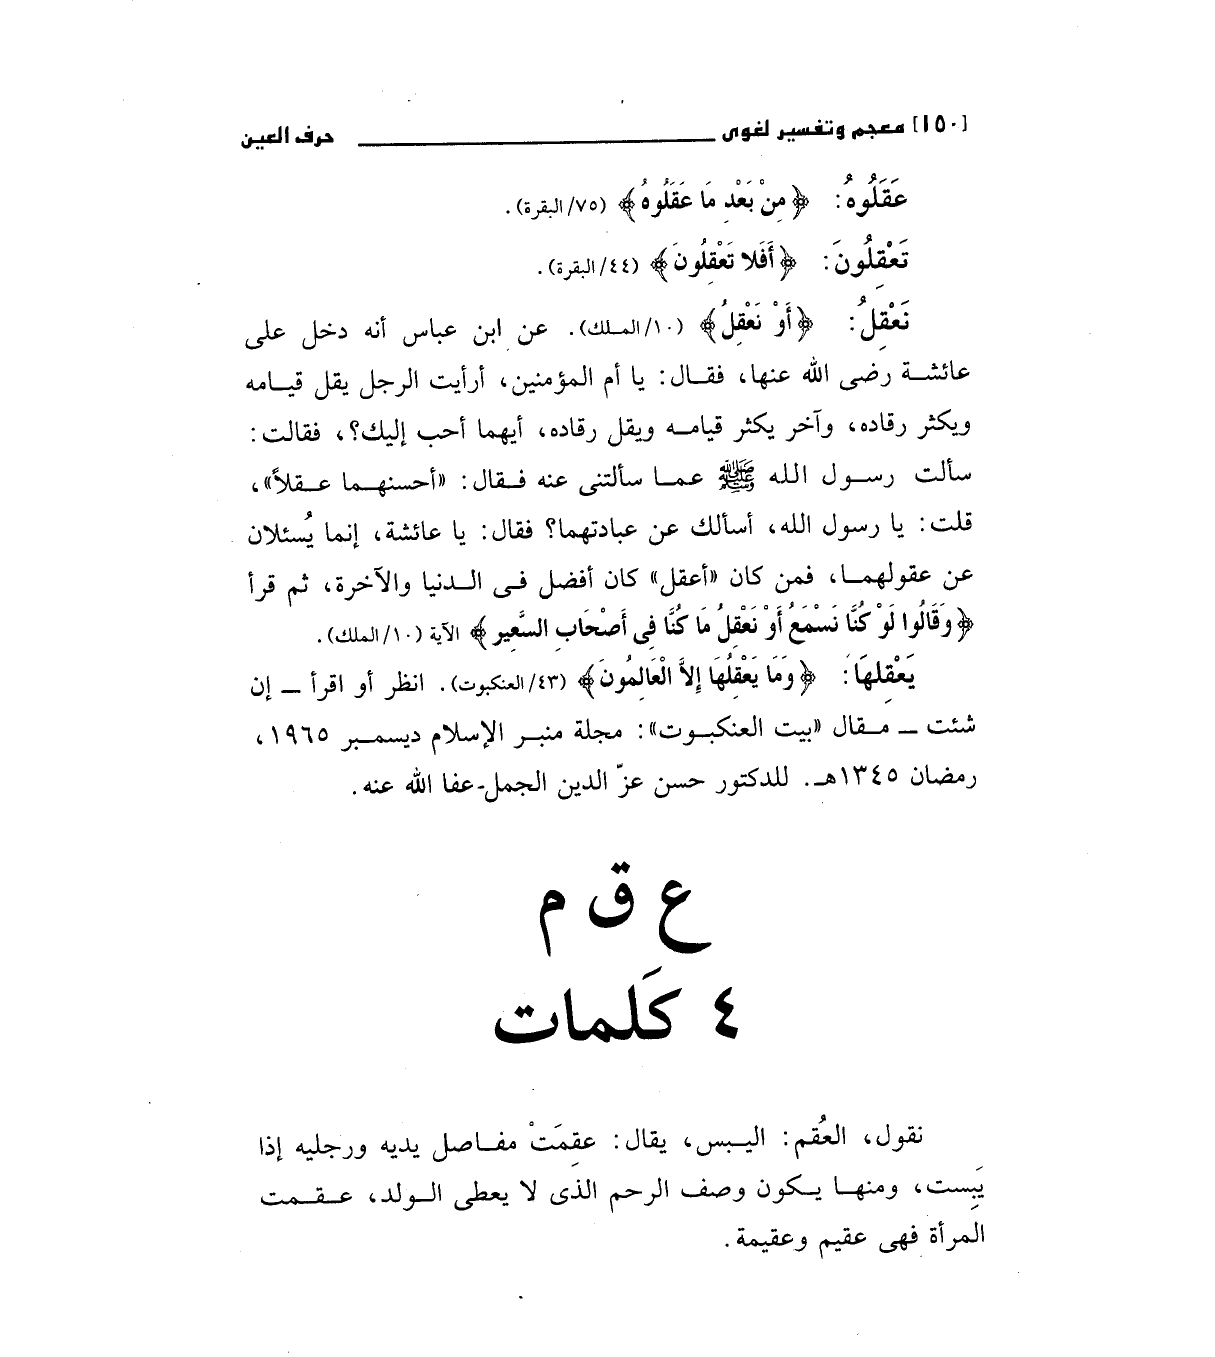 [١٥٠] معجم وتفسير لغوى ــــــــــ حرف العين
عَقَلُوهُ: ﴿مِنْ بَعْدِ مَا عَقَلُوهُ﴾ (٧٥/ البقرة).
تَعْقِلُونَ: ﴿أَفَلا تَعْقِلُونَ﴾ (٤٤/ البقرة).
نَعْقِلُ: ﴿أَوْ نَعْقِلُ﴾ (١٠/ الملك). عن ابن عباس أنه دخل على
عائشة رضى الله عنها، فقال: يا أم المؤمنين، أرأيت الرجل يقل قيامه
ويكثر رقاده، وآخر يكثر قيامه ويقل رقاده، أيهما أحب إليك؟، فقالت:
سألت رسول الله ﷺ عما سألتنى عنه فقال: «أحسنهما عقلاً»،
قلت: يا رسول الله، أسألك عن عبادتهما؟ فقال: يا عائشة، إنما يُسئلان
عن عقولهما، فمن كان «أعقل» كان أفضل فى الدنيا والآخرة، ثم قرأ
﴿وَقَالُوا لَوْ كُنَّا نَسْمَعُ أَوْ نَعْقِلُ مَا كُنَّا فِى أَصْحَابِ السَّعِيرِ﴾ الآية (١٠/ الملك).
يَعْقِلهَا: ﴿وَمَا يَعْقِلُهَا إِلاَّ الْعَالِمُونَ﴾ (٤٣/ العنكبوت). انظر أو اقرأ ــ إن
شئت ــ مقال «بيت العنكبوت»: مجلة منبر الإسلام ديسمبر ١٩٦٥،
رمضان ١٣٤٥هـ. للدكتور حسن عزّ الدين الجمل-عفا الله عنه.
ع ق م
٤ كَلمات
نقول، العُقم: اليبس، يقال: عقِمَتْ مفاصل يديه ورجليه إذا
يَبِست، ومنها يكون وصف الرحم الذى لا يعطى الولد، عقمت
المرأة فهى عقيم وعقيمة.